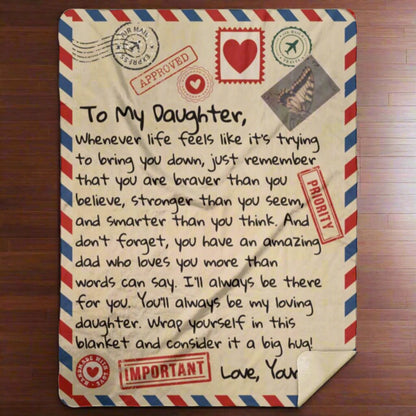 AIR MAIL
EXPRESS
APPROVED
To My Daughter,
Whenever life feels like it's trying
to bring you down, just remember
that you are braver than you
believe, stronger than you seem,
and smarter than you think. And
don't forget, you have an amazing
dad who loves you more than
words can say. I'll always be there
for you. You'll always be my loving
daughter. Wrap yourself in this
blanket and consider it a big hug!
Love, Your
PRIORITY
IMPORTANT